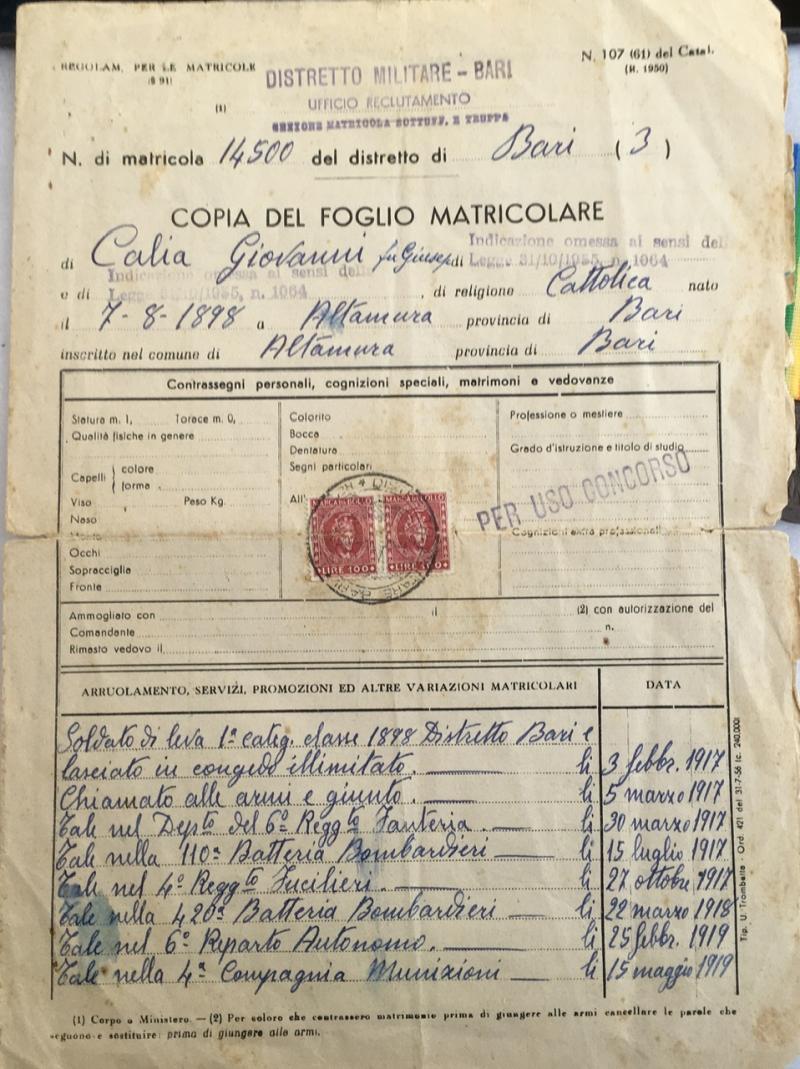 REGOLAM. PER LE MATRICOLE
(§ 91)
N. 107 (61) del Catal.
(R. 1950)
DISTRETTO MILITARE - BARI
(1)
UFFICIO RECLUTAMENTO
SEZIONE MATRICOLA SOTTUFF. E TRUPPA
N. di matricola 14500 del distretto di Bari (3)
COPIA DEL FOGLIO MATRICOLARE
di Calia Giovanni fu Giusep di Indicazione omessa ai sensi del
Legge 31/10/1955, n. 1064
Indicazione omessa ai sensi della
e di Legge 31/10/1955, n. 1064, di religione Cattolica nato
il 7-8-1898 a Altamura provincia di Bari
inscritto nel comune di Altamura provincia di Bari
Contrassegni personali, cognizioni speciali, matrimoni e vedovanze
Statura m. 1, Torace m. 0,
Qualità fisiche in genere
Capelli { colore
forma
Viso Peso Kg.
Naso
Mento
Occhi
Sopracciglia
Fronte
Colorito
Bocca
Dentatura
Segni particolari
All'
MARCA DA BOLLO MARCA DA BOLLO
LIRE 100 LIRE 100
Professione o mestiere
Grado d'istruzione e titolo di studio
PER USO CONCORSO
Cognizioni extra professionali
Ammogliato con il (2) con autorizzazione del
Comandante n.
Rimasto vedovo il
ARRUOLAMENTO, SERVIZI, PROMOZIONI ED ALTRE VARIAZIONI MATRICOLARI DATA
Soldato di leva 1ª categ. classe 1898 Distretto Bari e
lasciato in congedo illimitato. li 3 febbr. 1917
Chiamato alle armi e giunto. li 5 marzo 1917
Tale nel Depto del 6º Reggto Fanteria. li 30 marzo 1917
Tale nella 110ª Batteria Bombardieri li 15 luglio 1917
Tale nel 4º Reggto Fucilieri. li 27 ottobre 1917
Tale nella 420ª Batteria Bombardieri li 22 marzo 1918
Tale nel 6º Reparto Autonomo. li 25 febbr. 1919
Tale nella 4ª Compagnia Munizioni li 15 maggio 1919
Tip. U. Trombella - Ord. 421 del 31-7-56 (c. 240.000)
(1) Corpo o Ministero. — (2) Per coloro che contrassero matrimonio prima di giungere alle armi cancellare le parole che
seguono e sostituire: prima di giungere alle armi.